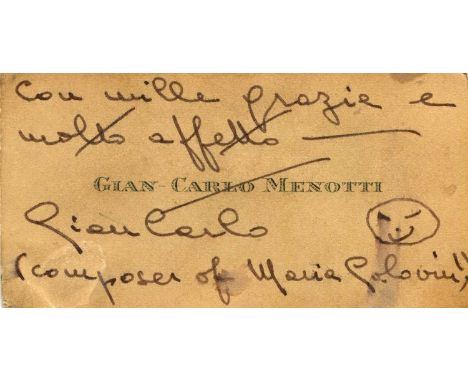 Con mille grazie e
molto affetto
GIAN-CARLO MENOTTI
Gian Carlo
(composer of Maria Golovin!)